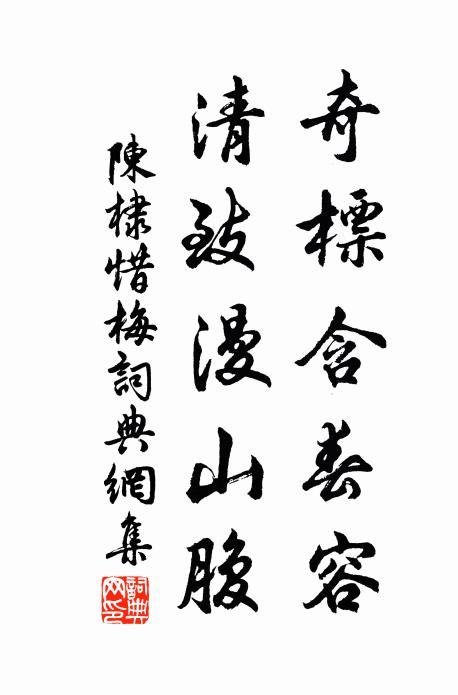 奇標含春容
清致漫山腹
陳棣惜梅詞典網集
詞典網印